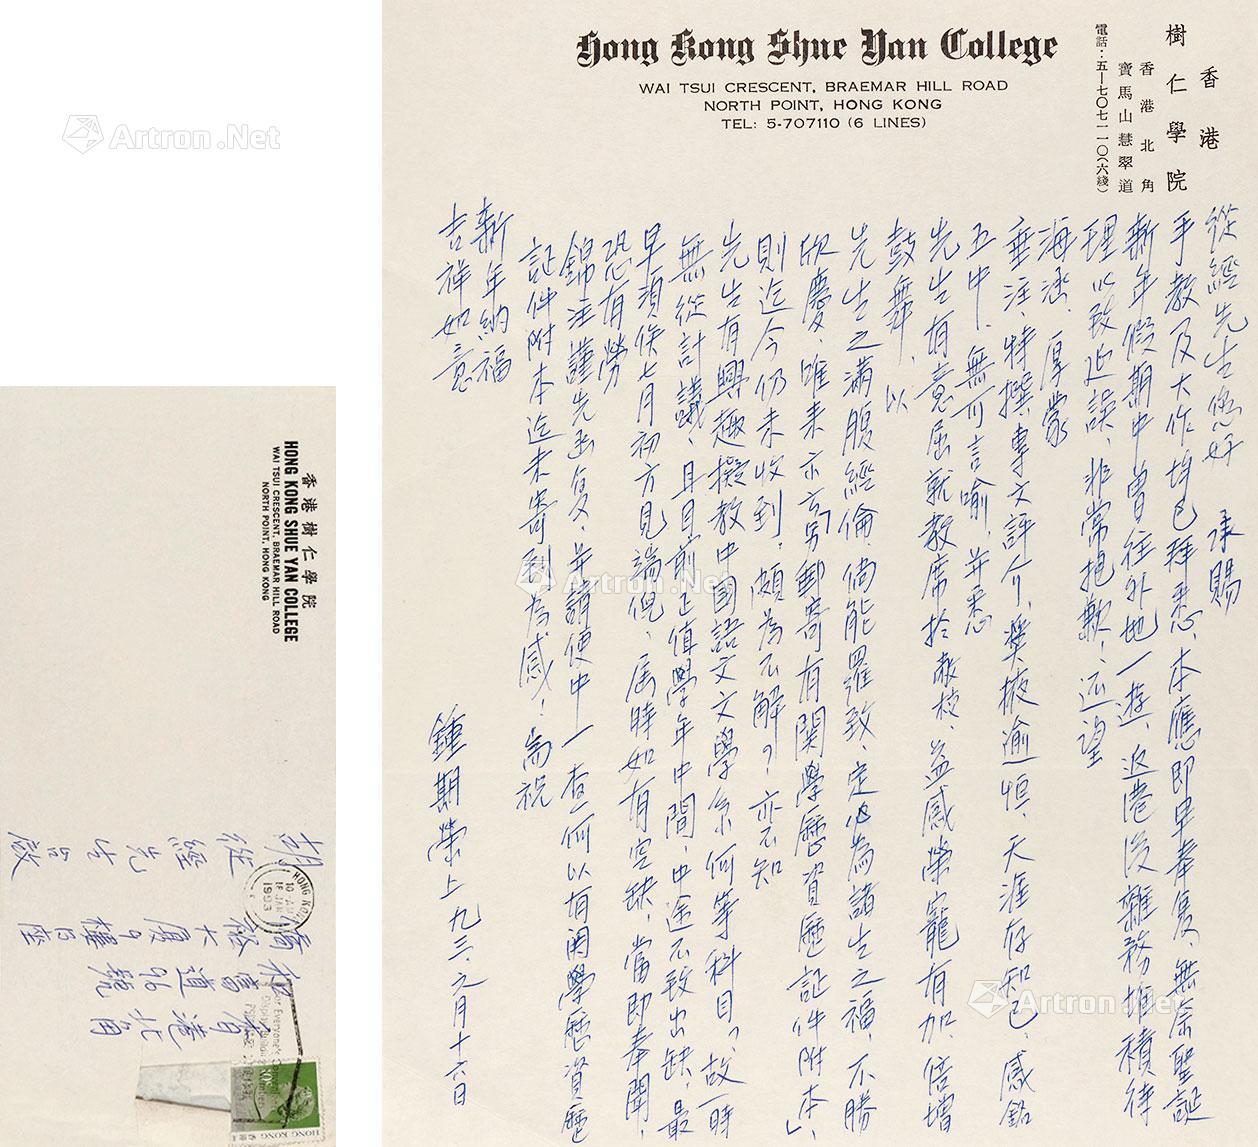 Hong Kong Shue Yan College
WAI TSUI CRESCENT, BRAEMAR HILL ROAD
NORTH POINT, HONG KONG
TEL: 5-707110 (6 LINES)
香港
樹仁學院
香港北角
寶馬山慧翠道
電話：五—七〇七一一〇（六綫）
從經先生您好 承賜
手教及大作均已拜悉，本應即早奉復，無奈聖誕
新年假期中曾往外地一遊，返港後雜務堆積待
理以致延誤，非常抱歉，还望
海涵，厚蒙
垂注，特撰專文評介，獎掖逾恒，天涯存知己，感銘
五中，無可言喻，并悉
先生有意屈就教席於敝校，益感榮寵有加，倍增
鼓舞，以
先生之滿腹經倫，倘能羅致，定必為諸生之福，不勝
欣慶，唯来示言「另郵寄有関學歷資歷証件附本」，
則迄今仍未收到，頗為不解？亦不知
先生有興趣擬教中國語文文學系何等科目？故一時
無從計議，且目前正值學年中間，中途不致出缺，最
早須俟七月初方見端倪，屆時如有空缺，當即奉聞，
恐有勞
錦注謹先函复，并請便中一查何以有関學歷資歷
証件附本迄未寄到為感！耑祝
新年納福
吉祥如意
鍾期榮上九三、元月十六日
香港樹仁學院
HONG KONG SHUE YAN COLLEGE
WAI TSUI CRESCENT, BRAEMAR HILL ROAD
NORTH POINT, HONG KONG
胡從經先生台啟
香港北角
HONG KONG
1993
HONG KONG
Artron.Net
Artron.Net
Artron.Net